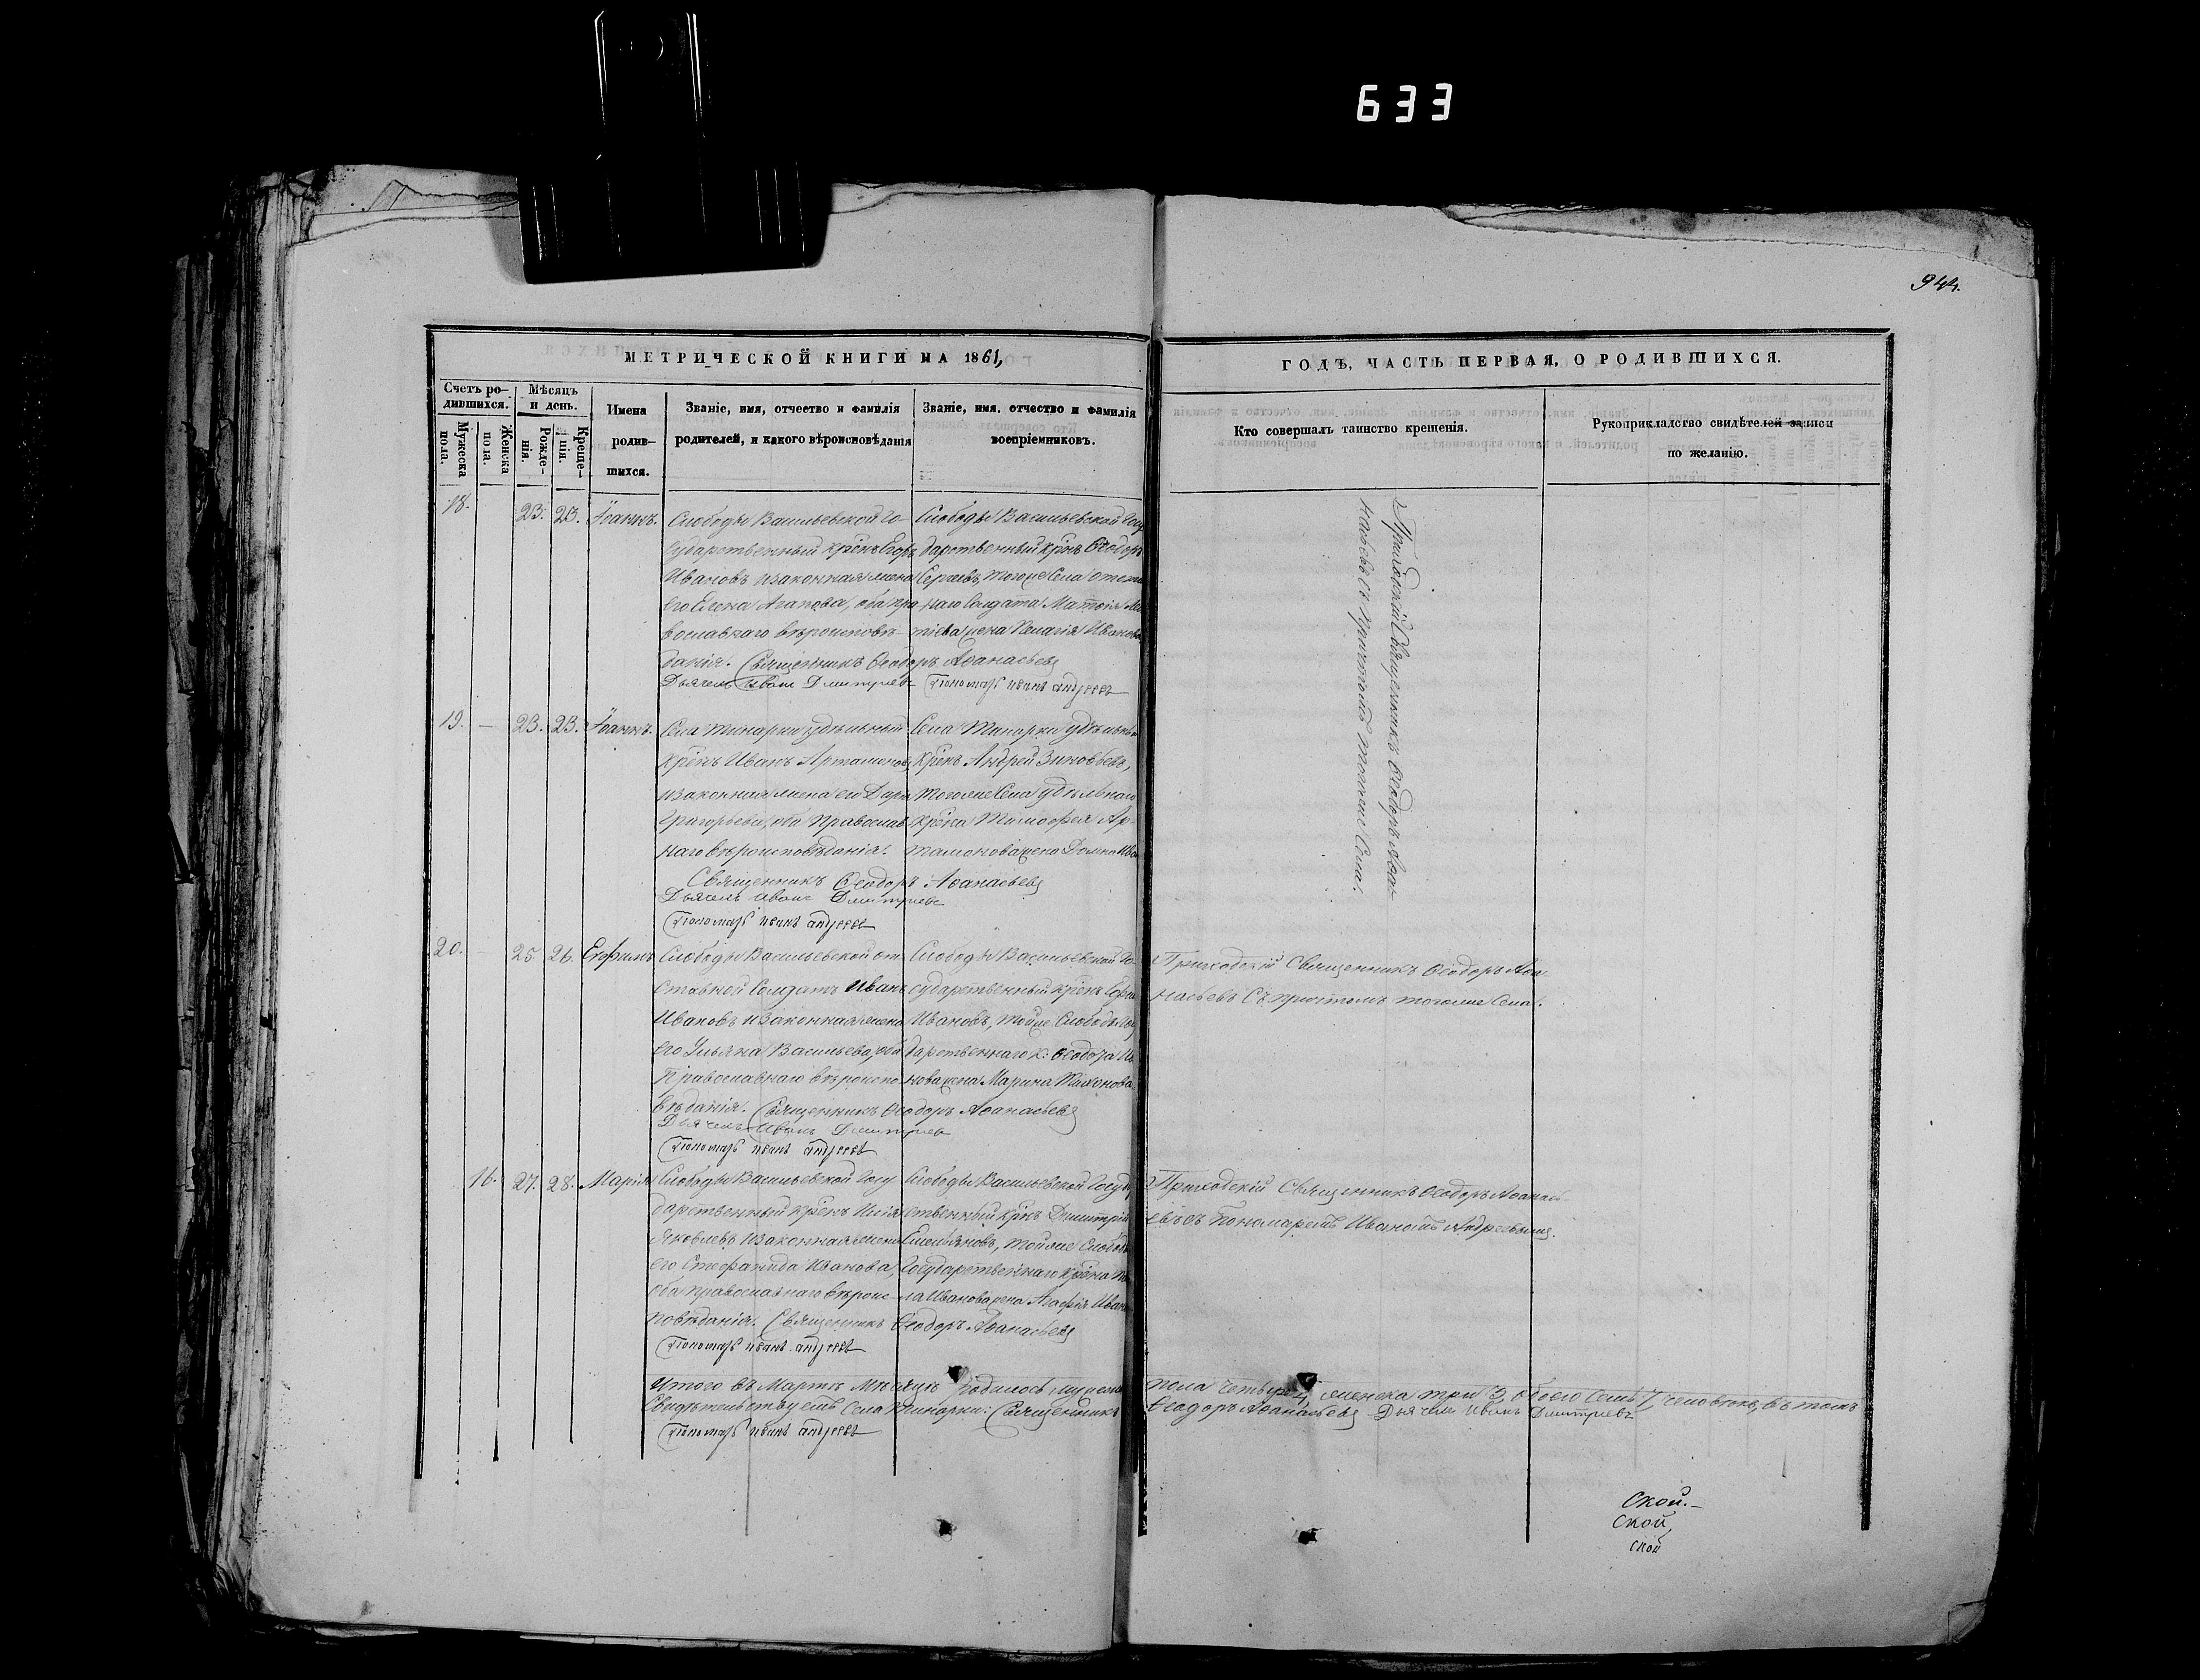 633
944.
МЕТРИЧЕСКОЙ КНИГИ НА 1861,
ГОДЪ, ЧАСТЬ ПЕРВАЯ, О РОДИВШИХСЯ.
Счетъ ро-
дившихся.
Мужеска
пола.
Женска
пола.
Мѣсяцъ
и день.
Рожде-
нія.
Креще-
нія.
Имена
родив-
шихся.
Званіе, имя, отчество и фамилія
родителей, и какого вѣроисповѣданія
Званіе, имя. отчество и фамилія
воспріемниковъ.
Кто совершалъ таинство крещенія.
Рукоприкладство свидѣтелей записи
по желанію.
18.
23. 23. Іоаннъ.
Слободы Васильевской Го-
сударственный крѣнъ Егоръ
Ивановъ и законная жена
его Елена Агапова, оба пра
вославнаго вѣроисповѣ-
данія. Священникъ Ѳеодоръ Аѳанасьевъ
Дьячекъ Иванъ Дмитріевъ Пономарь Иванъ Андреевъ
Слободы Васильевской Госу
дарственный крѣнъ Ѳеодоръ
Сергеевъ, тогоже Села
наго Солдата Матѳія
жена Пелагія Иванова
Приходскій Священникъ Ѳеодоръ Аѳа-
насьевъ съ причтомъ тогоже Села.
19. — 23. 23. Іоаннъ.
Села удѣльный
крѣнъ Иванъ Артамоновъ,
и законная жена его Дарья
Григорьева, оба Православ
наго вѣроисповѣданія.
Села удѣльный
крѣнъ Андрей Зиновьевъ,
тогоже Села удѣльнаго
крѣна Тимоѳея Ар-
тамонова жена Домна Ива
Священникъ Ѳеодоръ Аѳанасьевъ
Дьячекъ Иванъ Дмитріевъ
Пономарь Иванъ Андреевъ
20. 25. 26. Ефимъ
Слободы Васильевской от
ставной Солдатъ Иванъ
Ивановъ и законная жена
его Ульяна Васильева, оба
Православнаго вѣроиспо
вѣданія. Священникъ Ѳеодоръ Аѳанасьевъ
Дьячекъ Иванъ Дмитріевъ
Пономарь Иванъ Андреевъ
Слободы Васильевской Го-
сударственный крѣнъ
Ивановъ, тойже Слободы Госу
дарственнаго к: Ѳеодора Ив
нова жена Марина Тихонова
Приходскій Священникъ Ѳеодоръ Аѳа-
насьевъ съ причтомъ тогоже Села.
16. 27. 28. Марія
Слободы Васильевской Госу
дарственный крѣнъ Илія
Яковлевъ и законная жена
его Стефанида Иванова,
оба православнаго вѣроис-
повѣданія. Священникъ Ѳеодоръ Аѳанасьевъ
Пономарь Иванъ Андреевъ
Слободы Васильевской Государ
ственный крѣнъ Дмитрій
Емельяновъ, тойже Слободы
Государственнаго крѣна
ла Иванова жена Агафія Иван
Приходскій Священникъ Ѳеодоръ Аѳанась-
евъ съ Пономаремъ Иваномъ Андреевымъ.
Итого въ Мартѣ Мѣсяцѣ родилось мужеска пола четыре 4, женска три 3, обоего Семь 7, человѣкъ, въ томъ
Свидѣтельствуемъ Села Священникъ Ѳеодоръ Аѳанасьевъ Дьячекъ Иванъ Дмитріевъ
Пономарь Иванъ Андреевъ
ской.—
ской,
ской